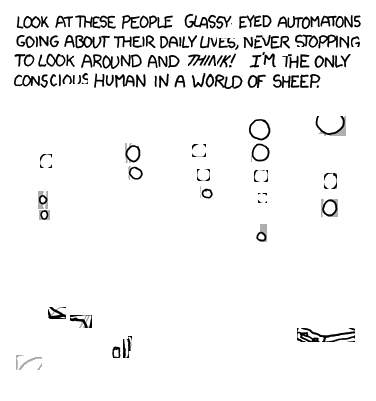 LOOK AT THESE PEOPLE GLASSY EYED AUTOMATONS
GOING ABOUT THEIR DAILY LIVES, NEVER STOPPING
TO LOOK AROUND AND THINK! I'M THE ONLY
CONSCIOUS HUMAN IN A WORLD OF SHEEP.